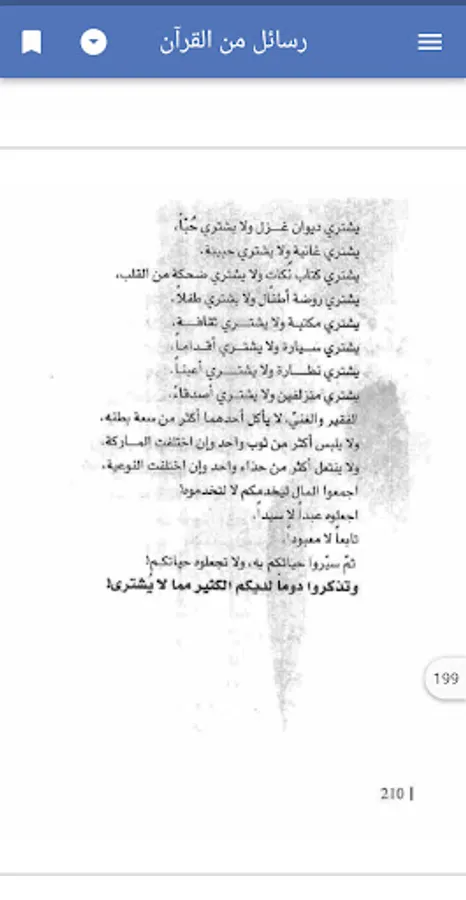 رسائل من القرآن
يشتري ديوان غـزل ولا يشتري حُبّاً،
يشتري غانية ولا يشتري حبيبة.
يشتري كتاب نُكات ولا يشتري ضحكة من القلب،
يشتري روضة أطفال ولا يشتري طفلاً.
يشتري مكتبة ولا يشتـري ثقافـة.
يشتري سيارة ولا يشتـري أقـداماً.
يشتري نظـارة ولا يشتـري أعيناً.
يشتري متزلفين ولا يشتري أصدقاءً.
الفقير والغنيّ، لا يأكل أحدهما أكثر من سعة بطنه،
ولا يلبس أكثر من ثوب واحد وإن اختلفت المـاركة.
ولا ينتعل أكثر من حذاء واحد وإن اختلفت النوعية.
اجمعوا المال ليخدمكم لا لتخدموه!
اجعلوه عبداً لا سيداً،
تابعاً لا معبوداً.
ثمّ سيّروا حياتكم به، ولا تجعلوه حياتكـم!
وتذكروا دوماً لديكم الكثير مما لا يُشترى!
199
210 |